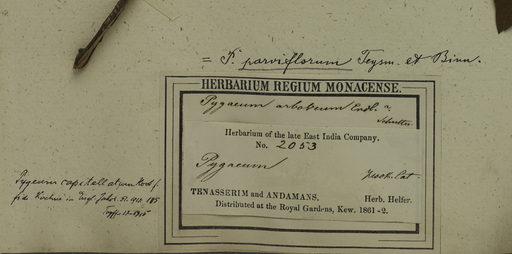 = P. parviflorum Teysm. et Binn.
HERBARIUM REGIUM MONACENSE.
Pygaeum arboreum Endl.
Herbarium of the late East India Company.
No. 2053
Pygaeum
TENASSERIM and ANDAMANS. Herb. Helfer.
Distributed at the Royal Gardens, Kew. 1861-2.
Pygeum capitellatum
fide Koehne in 1910